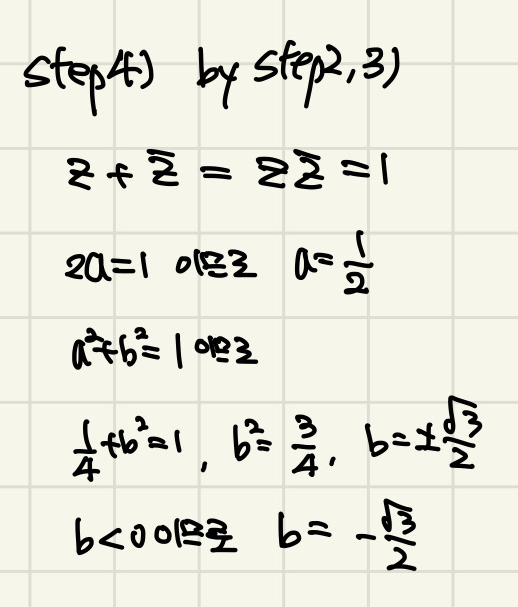 step4) by step2, 3)
z + z̅ = z z̅ = 1
2a = 1 이므로 a = 1/2
a² + b² = 1 이므로
1/4 + b² = 1, b² = 3/4, b = ±√3/2
b < 0 이므로 b = -√3/2